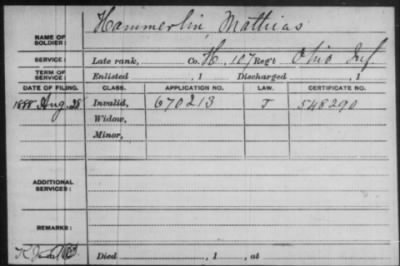 NAME OF SOLDIER: Hammerlin, Mathias
SERVICE: Late rank, Co. H, 107 Reg't Ohio Inf.
TERM OF SERVICE: Enlisted , 1 Discharged , 1
DATE OF FILING. CLASS. APPLICATION NO. LAW. CERTIFICATE NO.
1888 Aug. 28 Invalid, 670213 J 548290
Widow,
Minor,
ADDITIONAL SERVICES:
REMARKS:
Died , 1 , at